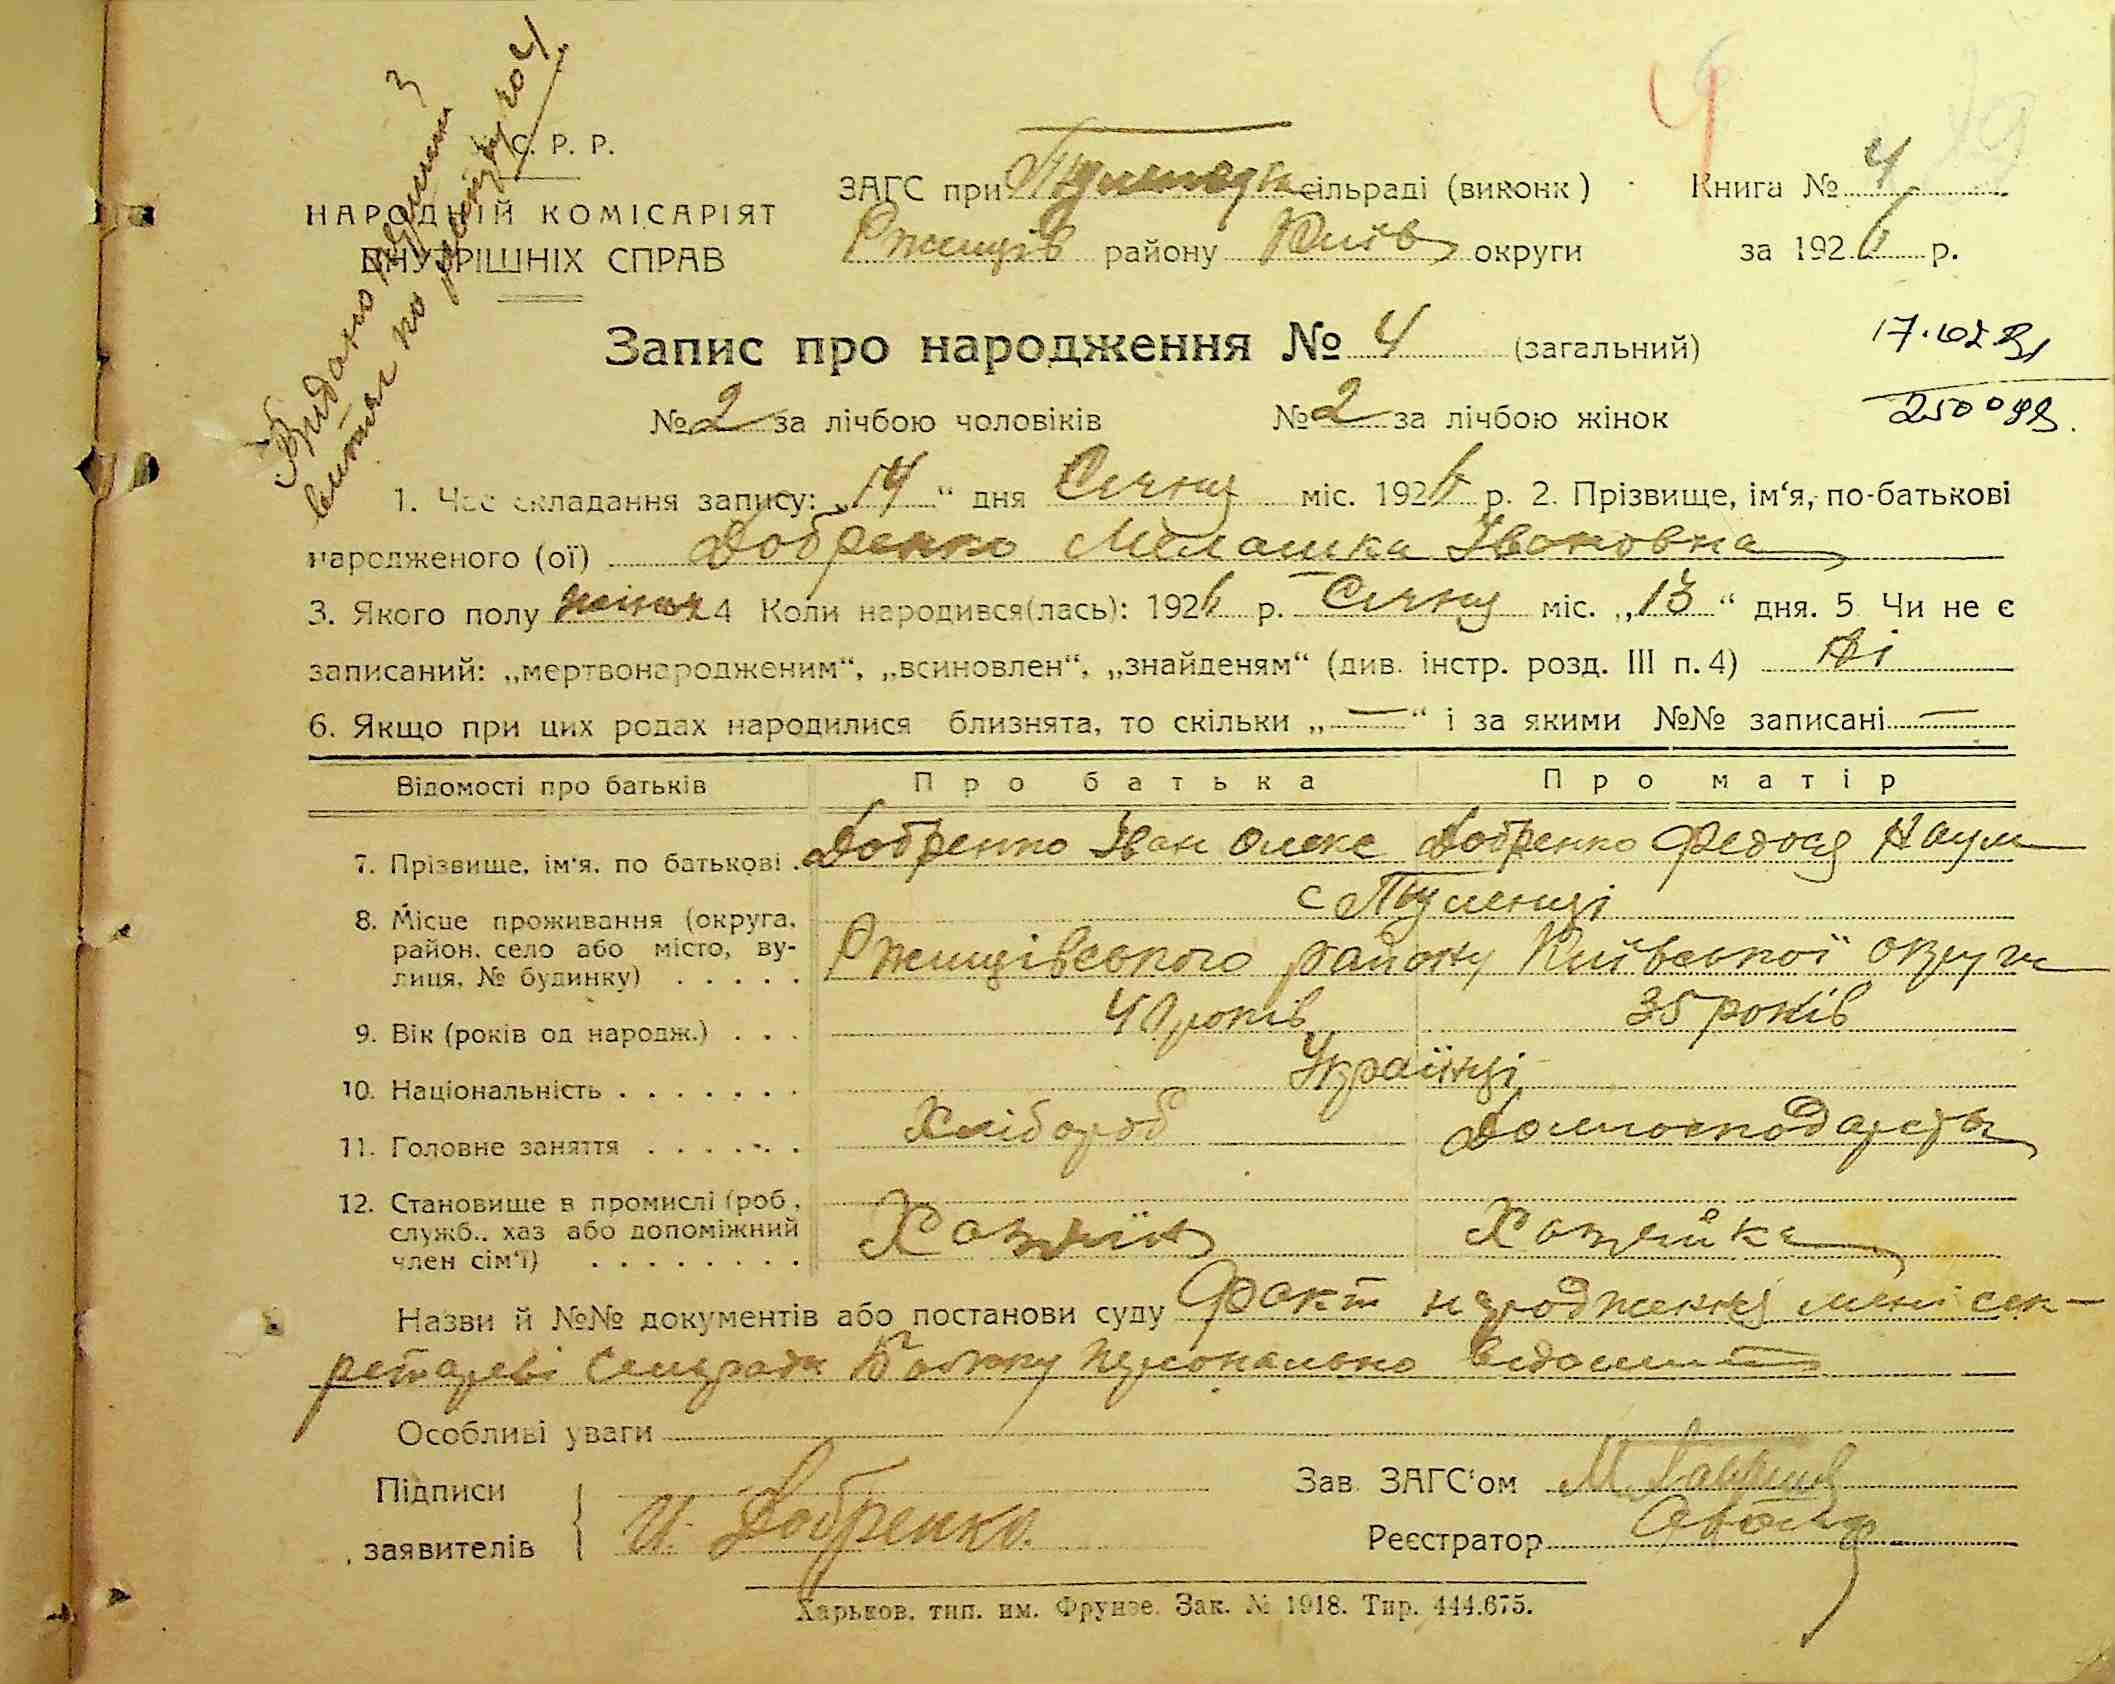 С. Р. Р.
НАРОДНІЙ КОМІСАРІЯТ
ВНУТРІШНІХ СПРАВ
Видано
витяг по
ЗАГС при сільраді (виконк)
Ржищів району Київ округи
Книга № 4
за 1926 р.
Запис про народження № 4 (загальний)
№ 2 за лічбою чоловіків № 2 за лічбою жінок
1. Час складання запису: „14“ дня Січня міс. 1926 р. 2. Прізвище, ім‘я, по-батькові
народженого (ої) Добренко Мелашка Івановна
3. Якого полу жіноч 4 Коли народився(лась): 1926 р. Січня міс. „13“ дня. 5 Чи не є
записаний: „мертвонародженим“, „всиновлен“, „знайденям“ (див. інстр. розд. III п. 4) Ні
6. Якщо при цих родах народилися близнята, то скільки „—“ і за якими №№ записані —
Відомості про батьків Про батька Про матір
7. Прізвище, ім‘я, по батькові Добренко Іван Олекс Добренко Федося Наум
8. Місце проживання (округа, район, село або місто, вулиця, № будинку) с Пуленці
Ржищівського району Київської округи
9. Вік (років од народж.) 40 років 35 років
10. Національність Українці
11. Головне заняття Хлібороб Домгосподарств
12. Становище в промислі (роб., служб., хаз або допоміжний член сім‘ї) Хазяїн Хазяйка
Назви й №№ документів або постанови суду Факт народження мені сек-
ретареві Сельради персонально відомий
Особливі уваги
Підписи
заявителів И. Добренко.
Зав. ЗАГС‘ом
Реєстратор
Харьков, тип. им. Фрунзе. Зак. № 1918. Тир. 444.675.